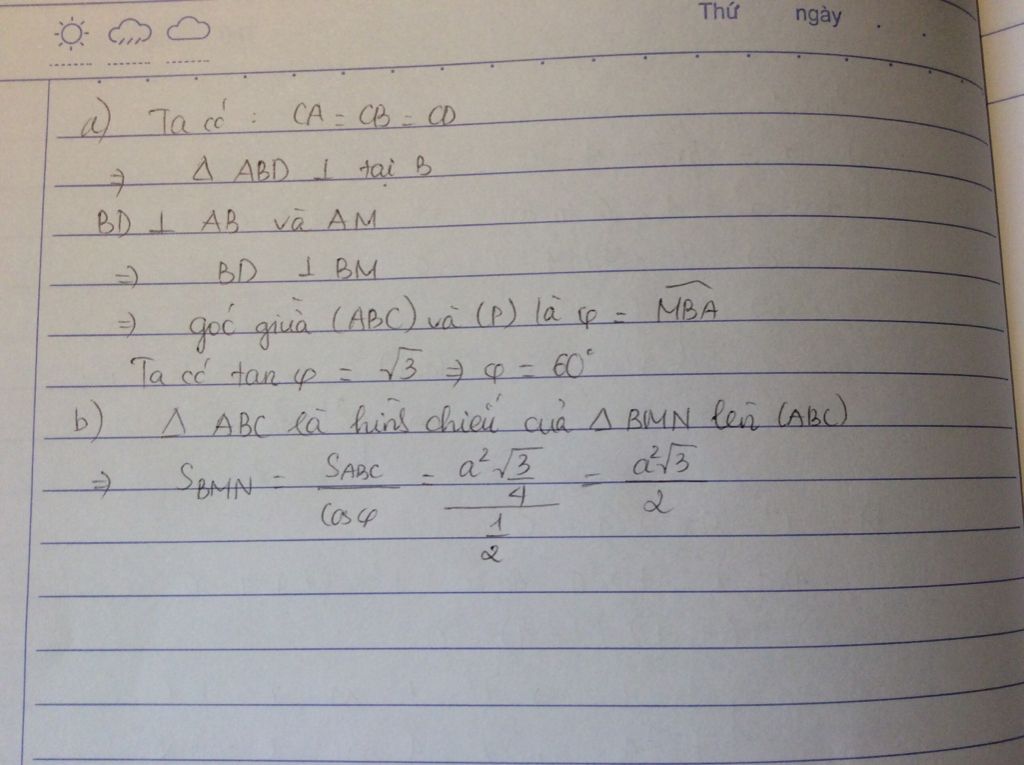 Thứ ngày . .
a) Ta có : CA = CB = CD
⇒ Δ ABD ⊥ tại B
BD ⊥ AB và AM
⇒ BD ⊥ BM
⇒ góc giữa (ABC) và (P) là φ = \widehat{MBA}
Ta có tan φ = √3 ⇒ φ = 60°
b) Δ ABC là hình chiếu của Δ BMN lên (ABC)
⇒ S_{BMN} = \frac{S_{ABC}}{cos φ} = \frac{\frac{a²√3}{4}}{\frac{1}{2}} = \frac{a²√3}{2}